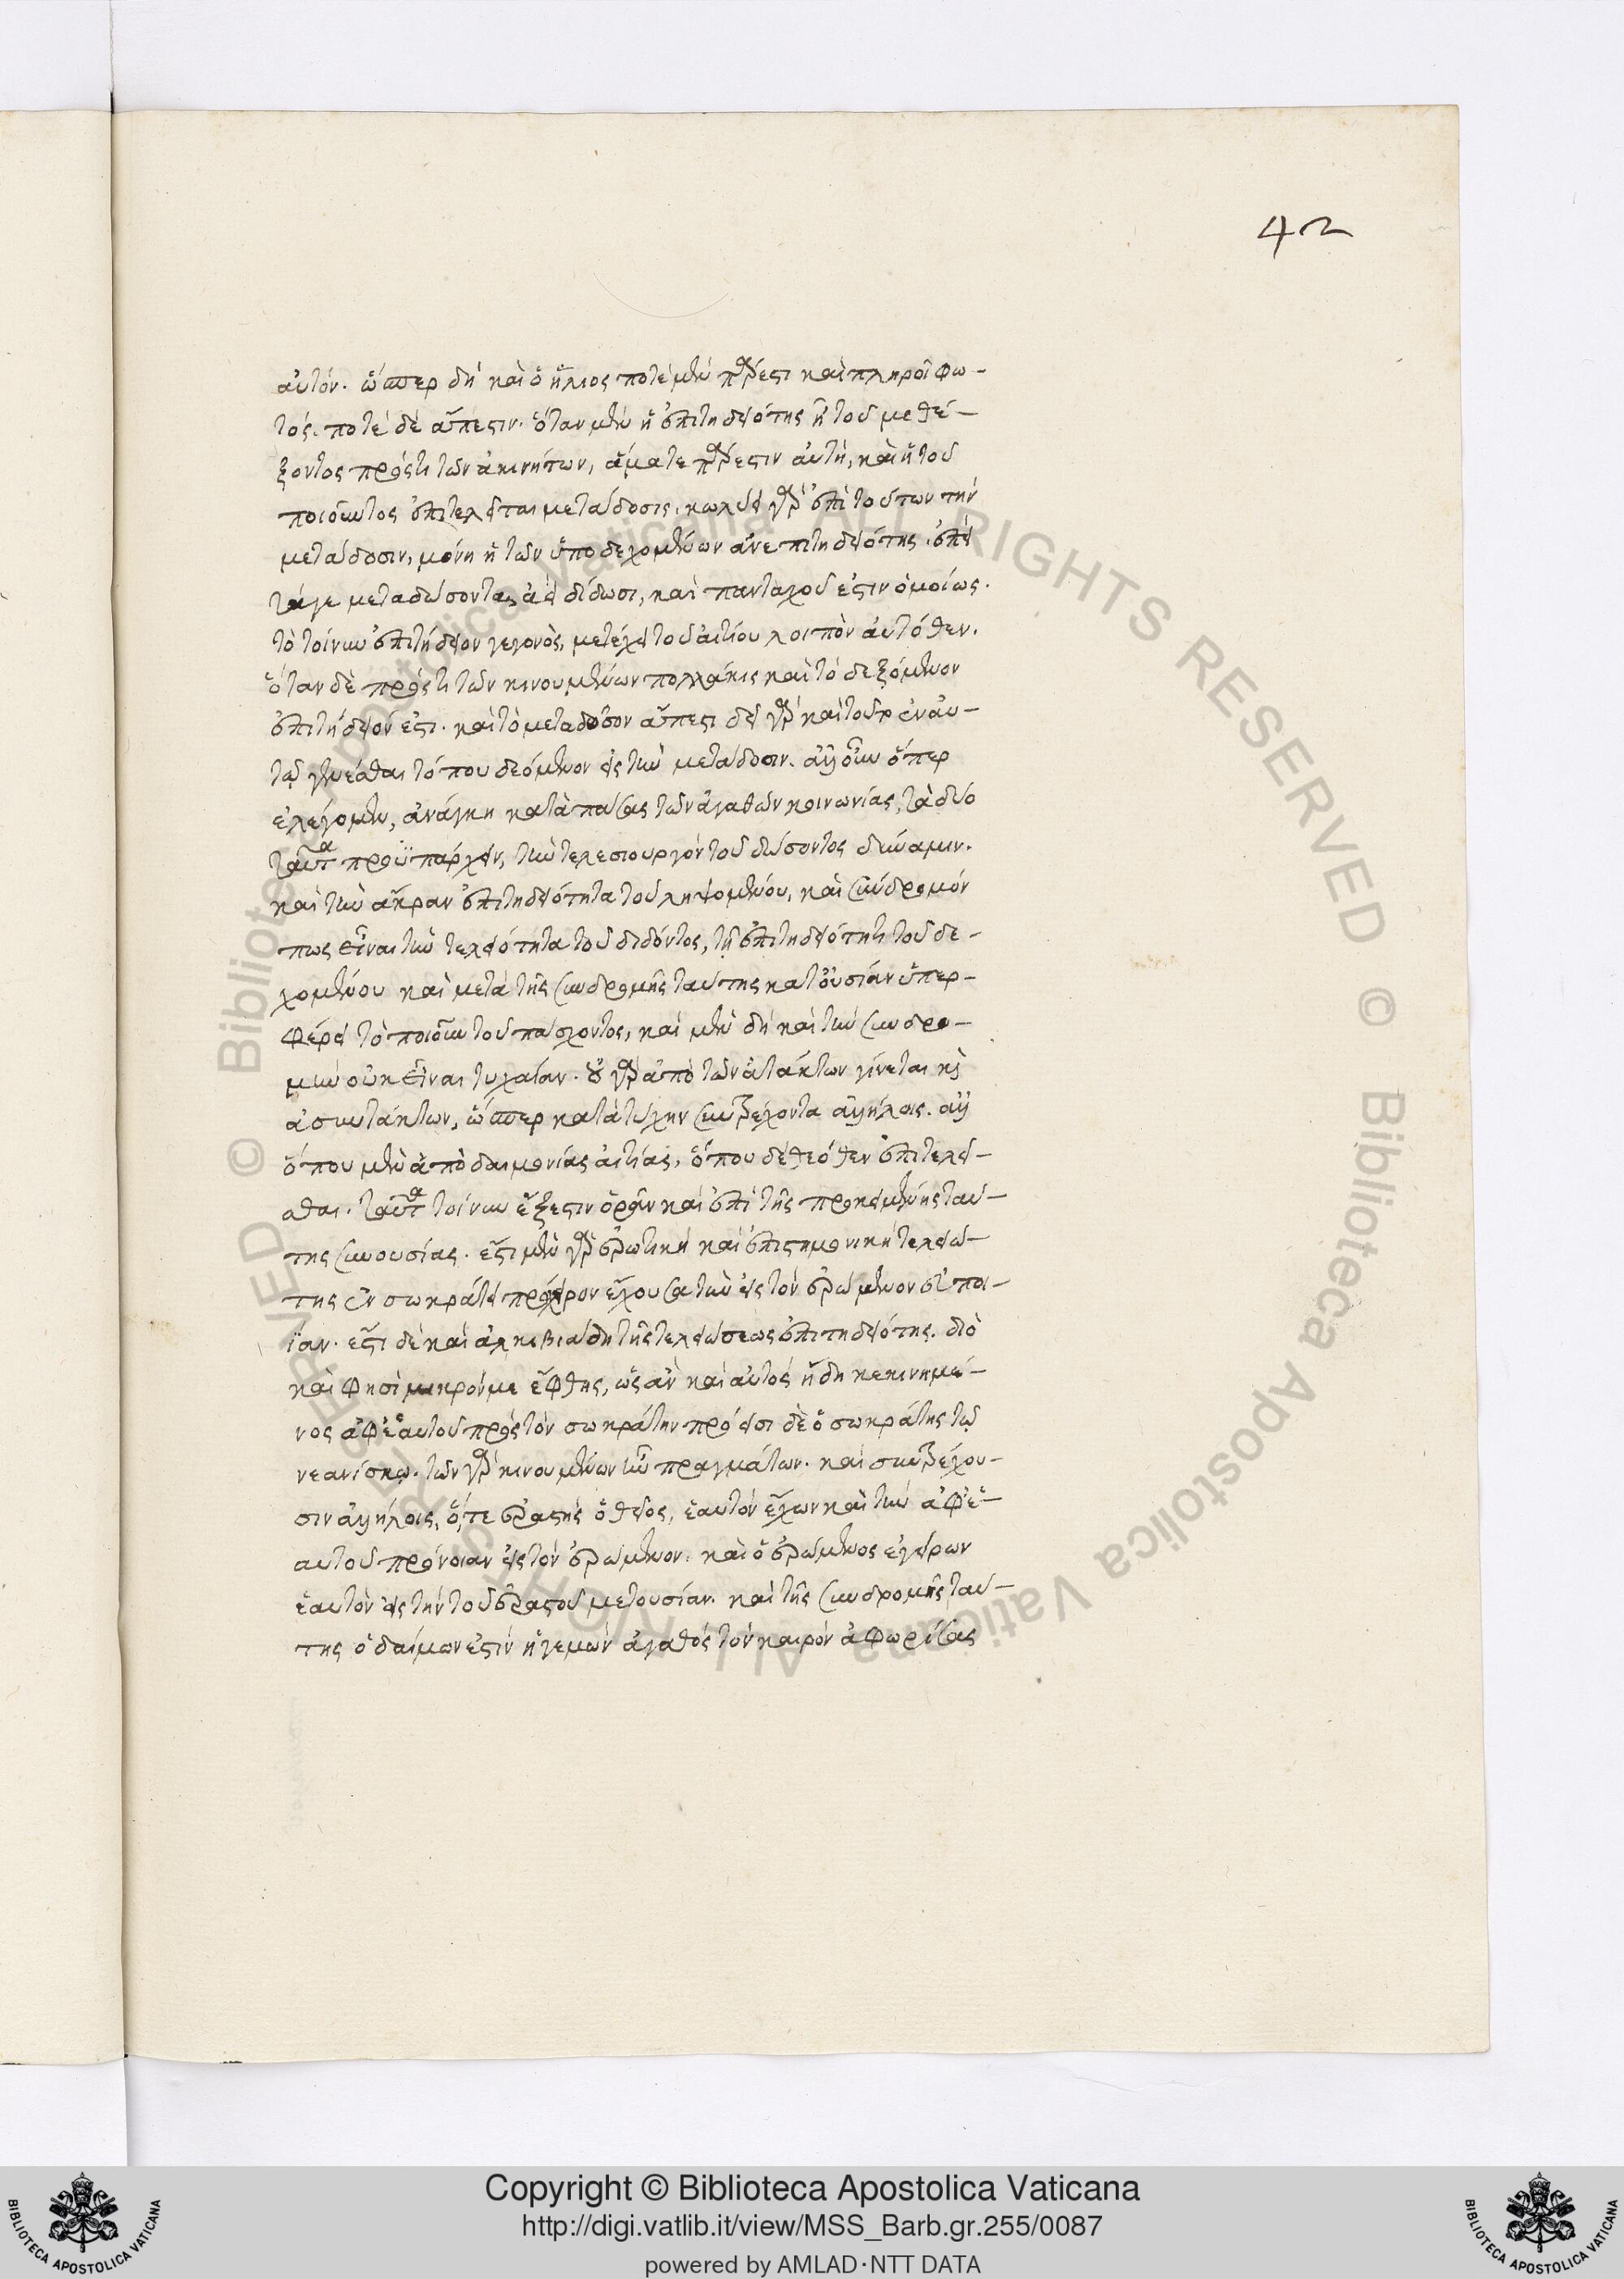 42
αὐτόν. ὥσπερ δὴ καὶ ὁ ἥλιος ποτὲ μὲν πάρεστι καὶ πληροῖ φω-
τός. ποτὲ δὲ ἄπεστιν. ὅταν μὲν ἡ ἐπιτηδειότης ἢ τοῦ μεθέ-
ξοντος πρός τι τῶν ἀκινήτων, ἅμα τε πάρεστιν αὐτὴ, καὶ ἡ τοῦ
ποιοῦντος ἐπιτελεῖται μετάδοσις. κωλύει γὰρ ἐπὶ τούτων τὴν
μετάδοσιν, μόνη ἡ τῶν ὑποδεχομένων ἀνεπιτηδειότης. ἐπεὶ
τά γε μεταδώσοντα, ἀεὶ δίδωσι, καὶ πανταχοῦ ἐστιν ὁμοίως.
τὸ τοίνυν ἐπιτήδειον γεγονὸς, μετέχει τοῦ αἰτίου λοιπὸν αὐτόθεν.
ὅταν δὲ πρός τι τῶν κινουμένων πολλάκις καὶ τὸ δεξόμενον
ἐπιτήδειόν ἐστι. καὶ τὸ μεταδῶσον ἄπεστι δεῖ γὰρ καὶ τοῦτο ἐν αὐ-
τῷ γενέσθαι τόπου δεόμενον εἰς τὴν μετάδοσιν. ἀλλ' οὖν ὅπερ
ἐλέγομεν, ἀνάγκη κατὰ πάσας τῶν ἀγαθῶν κοινωνίας, τὰ δύο
ταῦτα προϋπάρχειν, τὴν τελεσιουργὸν τοῦ δώσοντος δύναμιν.
καὶ τὴν ἄκραν ἐπιτηδειότητα τοῦ ληψομένου, καὶ σύνδρομόν
πως εἶναι τὴν τελειότητα τοῦ διδόντος, τῇ ἐπιτηδειότητι τοῦ δε-
χομένου καὶ μετὰ τῆς συνδρομῆς ταύτης κατ' οὐσίαν ὑπερ-
φέρει τὸ ποιοῦν τοῦ πάσχοντος, καὶ μὲν δὴ καὶ τὴν συνδρο-
μὴν οὐκ εἶναι τυχαίαν. οὐ γὰρ ἀπὸ τῶν ἀτάκτων γίνεται καὶ
ἀσυντάκτων, ὥσπερ κατὰ τύχην συντρέχοντα ἀλλήλοις. ἀλλ'
ὅπου μὲν ἀπὸ δαιμονίας αἰτίας, ὅπου δὲ θεόθεν ἐπιτελεῖ-
σθαι. ταῦτα τοίνυν ἔξεστιν ὁρᾶν καὶ ἐπὶ τῆς προκειμένης ταύ-
της συνουσίας. ἔστι μὲν γὰρ ἐρωτικὴ καὶ ἐπιστημονικὴ τελειό-
της ἐν σωκράτει πρόχειρον ἔχουσα τὴν εἰς τὸν ἐρώμενον εὐποι-
ΐαν. ἔστι δὲ καὶ ἀλκιβιάδῃ τῆς τελειώσεως ἐπιτηδειότης. διὸ
καὶ φησὶ μικρόν με ἔφθης, ὡς ἂν καὶ αὐτὸς ἤδη κεκινημέ-
νος ἀφ' ἑαυτοῦ πρὸς τὸν σωκράτην πρόεισι δὲ ὁ σωκράτης τῷ
νεανίσκῳ. τῶν γὰρ κινουμένων ἦν πραγμάτων. καὶ συντρέχου-
σιν ἀλλήλοις, ὅ, τε ἐραστὴς ὁ θεῖος, ἑαυτὸν ἔχων καὶ τὴν ἀφ' ἑ-
αυτοῦ πρόνοιαν εἰς τὸν ἐρώμενον. καὶ ὁ ἐρώμενος ἐγείρων
ἑαυτὸν εἰς τὴν τοῦ ἐραστοῦ μετουσίαν. καὶ τῆς συνδρομῆς ταύ-
της ὁ δαίμων ἐστὶν ἡγεμὼν ἀγαθὸς τὸν καιρὸν ἀφωρίσας
Copyright © Biblioteca Apostolica Vaticana
http://digi.vatlib.it/view/MSS_Barb.gr.255/0087
powered by AMLAD·NTT DATA